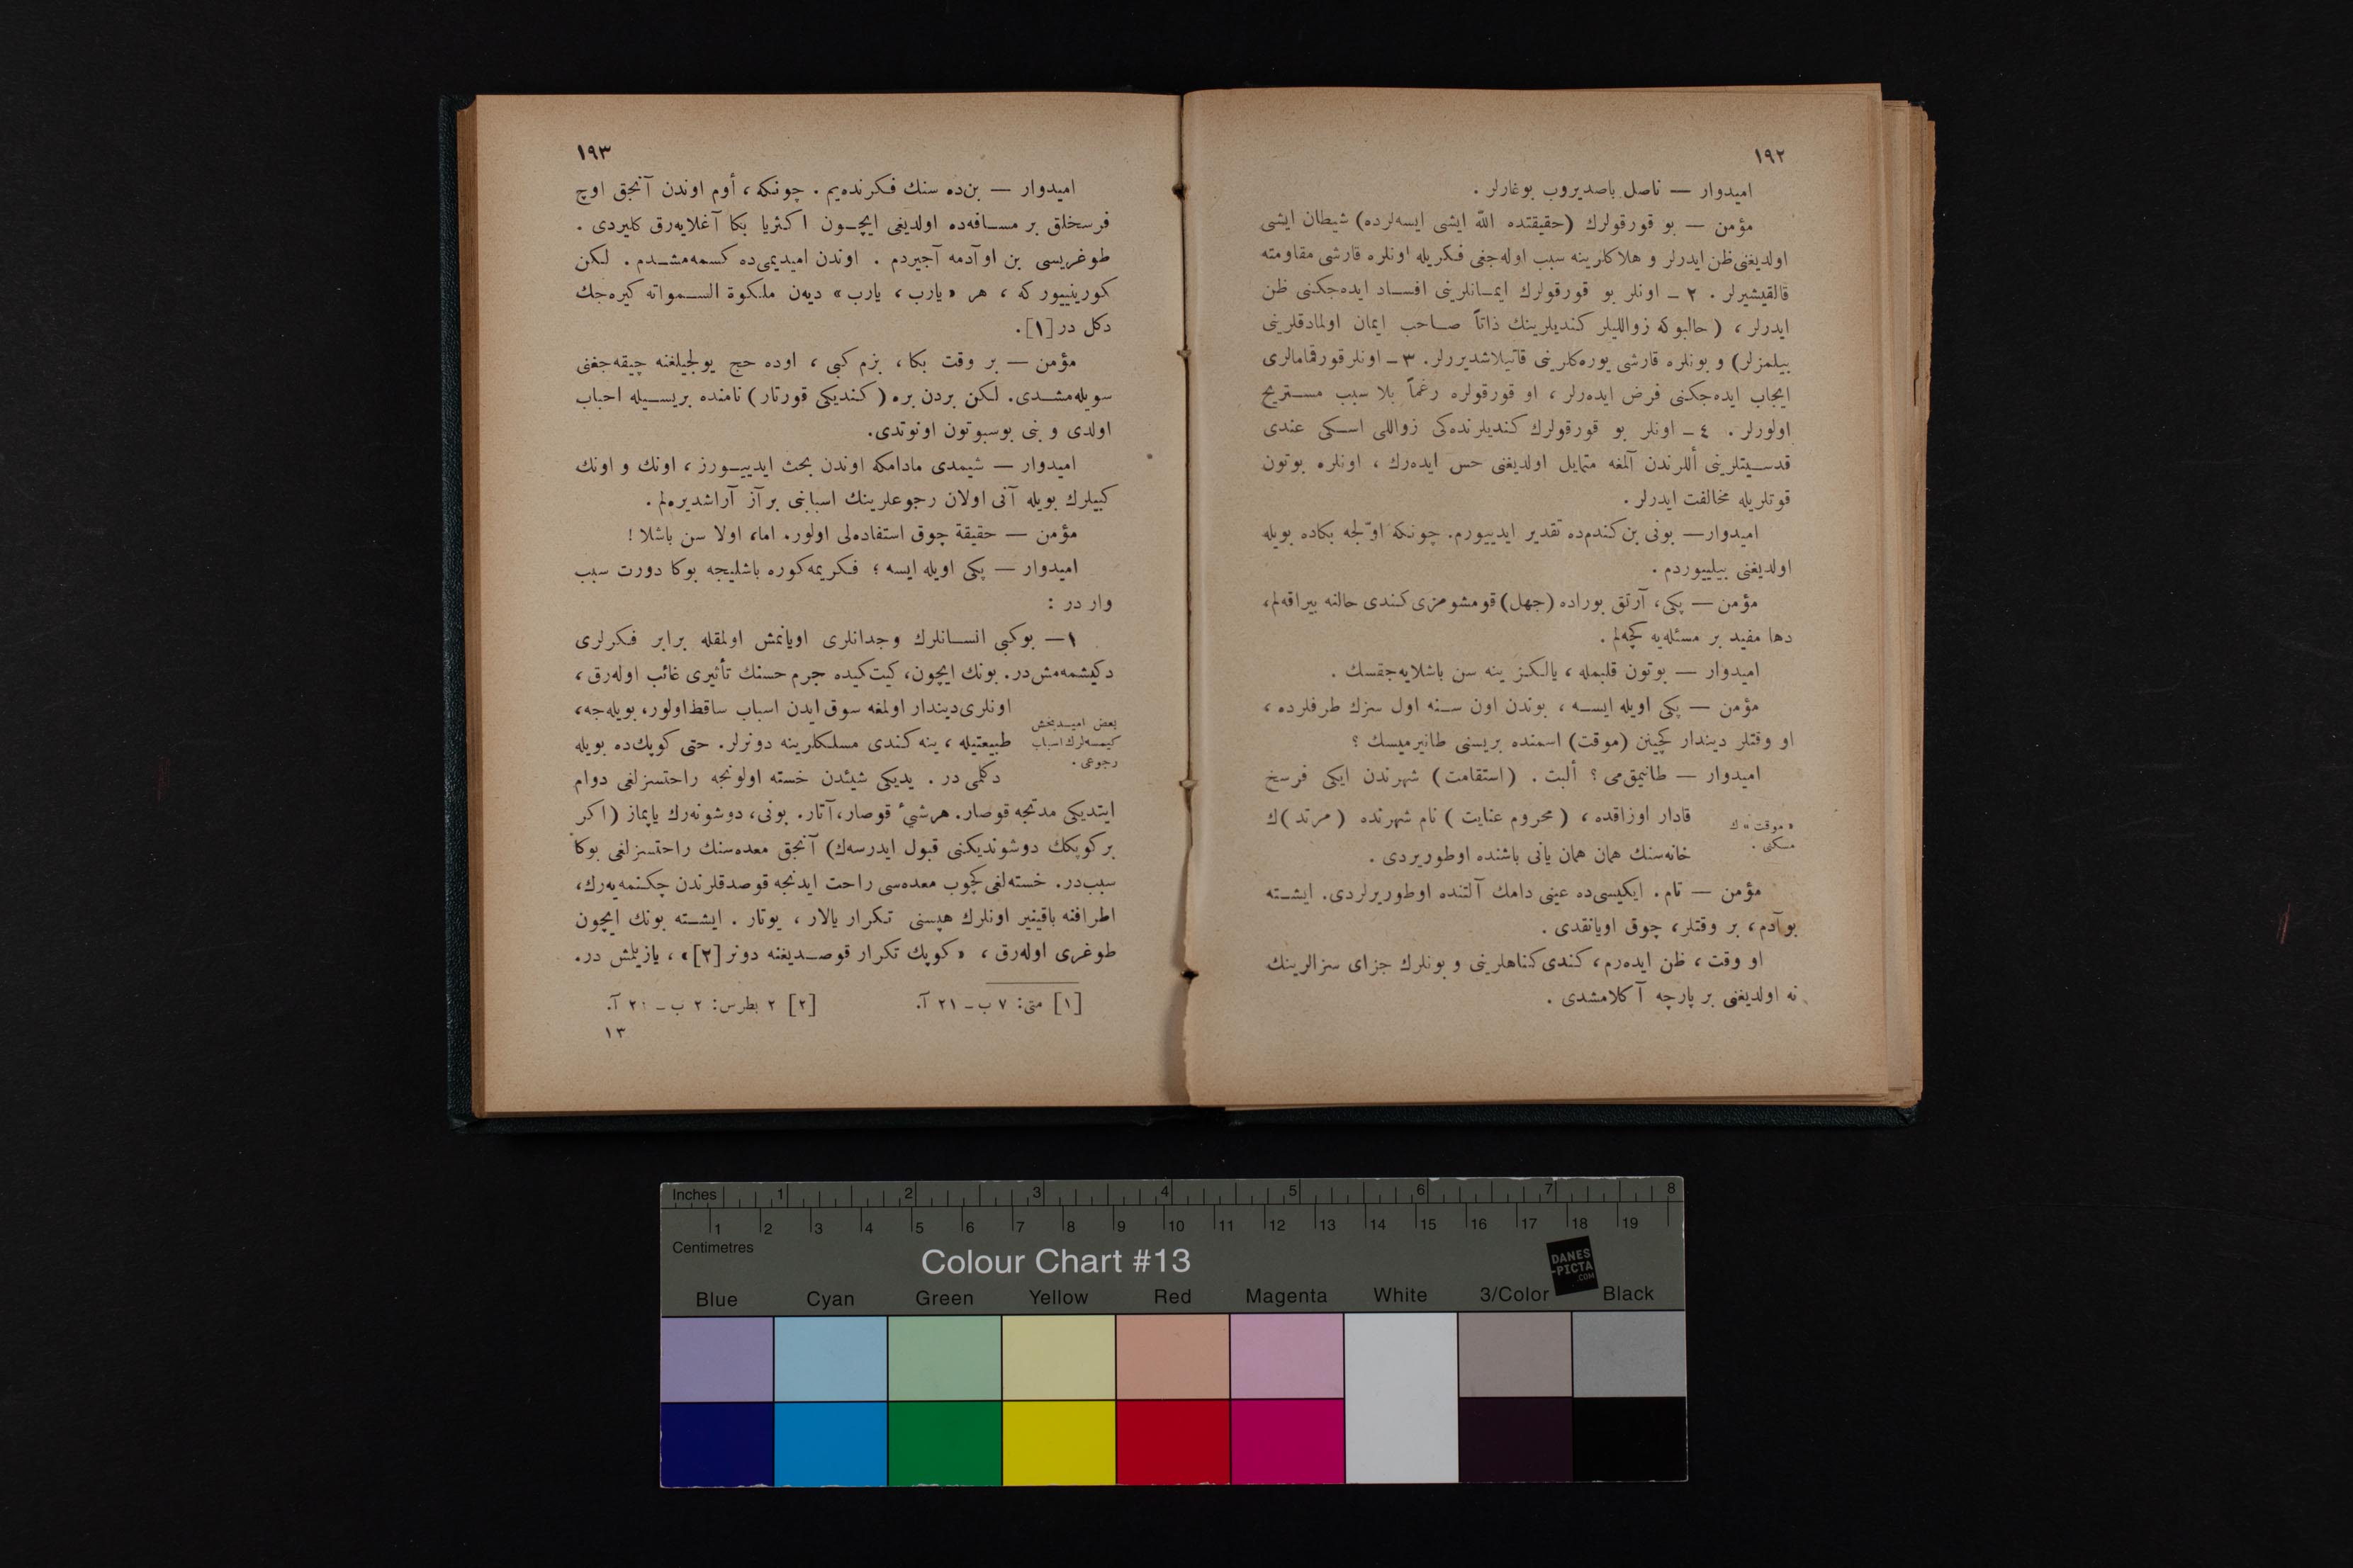 ١٩٢
اميدوار — ناصل باصديروب بوغارلر .
مؤمن — بو قورقولرك (حقيقتده الله ايشى ايسه‌لرده) شيطان ايشى
اولديغنى ظن ايدرلر و هلاكلرينه سبب اوله‌جغى فكريله اونلره قارشى مقاومته
قالقيشيرلر . ٢ ـ اونلر بو قورقولرك ايمانلرينى افساد ايده‌جكنى ظن
ايدرلر ، (حالبوكه زواللیلر كنديلرينك ذاتاً صاحب ايمان اولمادقلرينى
بيلمزلر) و بونلره قارشى يوره‌كلرينى قاتيلاشديررلر. ٣ ـ اونلر قورقمامالرى
ايجاب ايده‌جكنى فرض ايده‌رلر ، او قورقولره رغماً بلا سبب مستريح
اولورلر . ٤ ـ اونلر بو قورقولرك كنديلرنده‌كى زواللى اسكى عندى
قدسيتلرينى أللرندن آلمغه متمايل اولديغنى حس ايده‌رك ، اونلره بوتون
قوتلريله مخالفت ايدرلر .
اميدوار— بونى بن كندم‌ده تقدير ايدييورم. چونكه اوّلجه بكاده بويله
اولديغنى بيلييوردم .
مؤمن — پكى، آرتق بوراده (جهل) قومشومزى كندى حالنه بيراقه‌لم،
دها مفيد بر مسئله‌يه كچه‌لم .
اميدوار — بوتون قلبمله ، يالكز ينه سن باشلايه‌جقسك .
مؤمن — پكى اويله ايسه ، بوندن اون سنه اول سزك طرفلرده ،
او وقتلر ديندار كچينن (موقت) اسمنده بريسنى طانيرميسك ؟
اميدوار — طانيمق‌مى ؟ ألبت . (استقامت) شهرندن ايكى فرسخ
قادار اوزاقده ، (محروم عنايت) نام شهرنده (مرتد)ك
« موقت » ك
مسكنى .
خانه‌سنك همان همان يانى باشنده اوطوريردى .
مؤمن — تام . ايكيسى‌ده عينى دامك آلتنده اوطوريرلردى. ايشته
بو آدم، بر وقتلر، چوق اويانقدى .
او وقت ، ظن ايده‌رم، كندى كناهلرينى و بونلرك جزاى سزالرينك
نه اولديغنى بر پارچه آكلامشدى .
١٩٣
اميدوار — بن‌ده سنك فكرنده‌يم . چونكه ، أوم اوندن آنجق اوچ
فرسخلق بر مسافه‌ده اولديغى ايچون اكثريا بكا آغلايه‌رق كليردى .
طوغريسى بن او آدمه آجيردم . اوندن اميديمى‌ده كسمه‌مشدم . لكن
كورينييور كه ، هر « يارب ، يارب » ديه‌ن ملكوة السمواته كيره‌جك
دكل در [١].
مؤمن — بر وقت بكا ، بزم كبى ، اوده حج يولجيلغنه چيقه‌جغنى
سويله‌مشدى. لكن بردن بره (كنديكى قورتار) نامنده بريسيله احباب
اولدى و بنى بوسبوتون اونوتدى.
اميدوار — شيمدى مادامكه اوندن بحث ايدييورز ، اونك و اونك
كبيلرك بويله آنى اولان رجوعلرينك اسبابنى بر آز آراشديره‌لم .
مؤمن — حقيقة چوق استفاده‌لى اولور. اما، اولا سن باشلا !
اميدوار — پكى اويله ايسه ؛ فكريمه كوره باشليجه بوكا دورت سبب
وار در :
١— بوكبى انسانلرك وجدانلرى اويانمش اولمقله برابر فكرلرى
دكيشمه‌مش‌در. بونك ايچون، كيت كيده جرم حسنك تأثيرى غائب اوله‌رق ،
اونلرى ديندار اولمغه سوق ايدن اسباب ساقط اولور، بويله‌جه،
بعض اميدبخش
كيمسه‌لرك اسباب
رجوعى .
طبيعتيله ، ينه كندى مسلكلرينه دونرلر. حتى كوپك‌ده بويله
دكلمى در . يديكى شيئدن خسته اولونجه راحتسزلغى دوام
ايتديكى مدتجه قوصار. هرشئ قوصار، آتار. بونى، دوشونه‌رك ياپماز (اكر
بر كوپكك دوشونديكنى قبول ايدرسه‌ك) آنجق معده‌سنك راحتسزلغى بوكا
سبب‌در. خسته‌لغى كچوب معده‌سى راحت ايدنجه قوصدقلرندن چكنمه‌يه‌رك،
اطرافنه باقينير اونلرك هپسنى تكرار يالار ، يوتار . ايشته بونك ايچون
طوغرى اوله‌رق ، « كوپك تكرار قوصديغنه دونر [٢]» ، يازيلمش در.
[١] متى: ٧ ب ـ ٢١ آ. [٢] ٢ بطرس: ٢ ب ـ ٢٠ آ.
١٣
Inches 1 2 3 4 5 6 7 8
1 2 3 4 5 6 7 8 9 10 11 12 13 14 15 16 17 18 19
Centimetres
Colour Chart #13
DANES
-PICTA
.COM
Blue Cyan Green Yellow Red Magenta White 3/Color Black